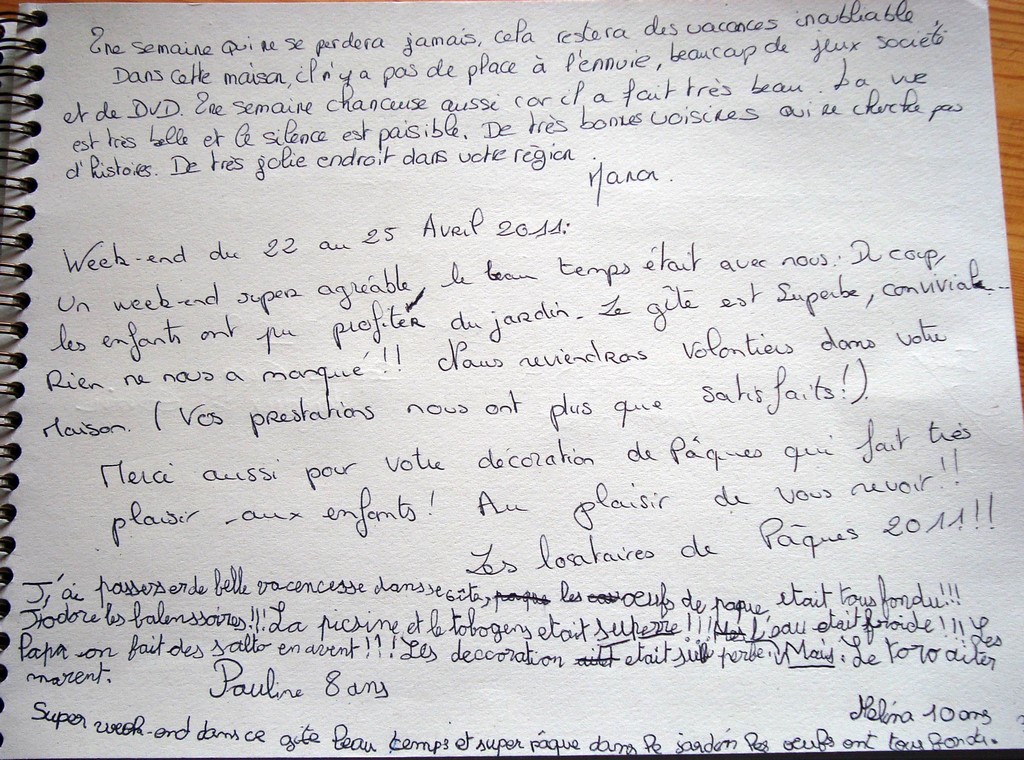 Une semaine qui ne se perdera jamais, cela restera des vacances inoubliable.
Dans cette maison, il n'y a pas de place à l'ennuie, beaucoup de jeux société
et de DVD. Une semaine chanceuse aussi car il a fait très beau. La vue
est très belle et le silence est paisible. De très bonnes voisines qui ne cherche pas
d'histoires. De très jolie endroit dans votre région.
Manon.
Week-end du 22 au 25 Avril 2011:
Un week-end super agréable, le beau temps était avec nous. Du coup,
les enfants ont pu profiter du jardin. Le gîte est Superbe, convivial...
Rien ne nous a manqué!!! Nous reviendrons volontiers dans votre
maison. (Vos prestations nous ont plus que satisfaits!).
Merci aussi pour votre décoration de Pâques qui fait très
plaisir aux enfants! Au plaisir de vous revoir!!
Les locataires de Pâques 2011!!
J'ai passerser de belle vacencesse dans se gite, les oeufs de paque etait tous fondu!!!
J'odore les balenssoires!!! La picsine et le tobogens etait superre!!! L'eau etait froide!!!! Le
Papa on fait des salto en avent!!! Les deccoration etait su perbe. Mais. Le toro aiter
marent. Les
Pauline 8 ans
Melina 10 ans
Super week-end dans ce gite beau temps et super pâque dans le jardin les oeufs ont tous fondu.